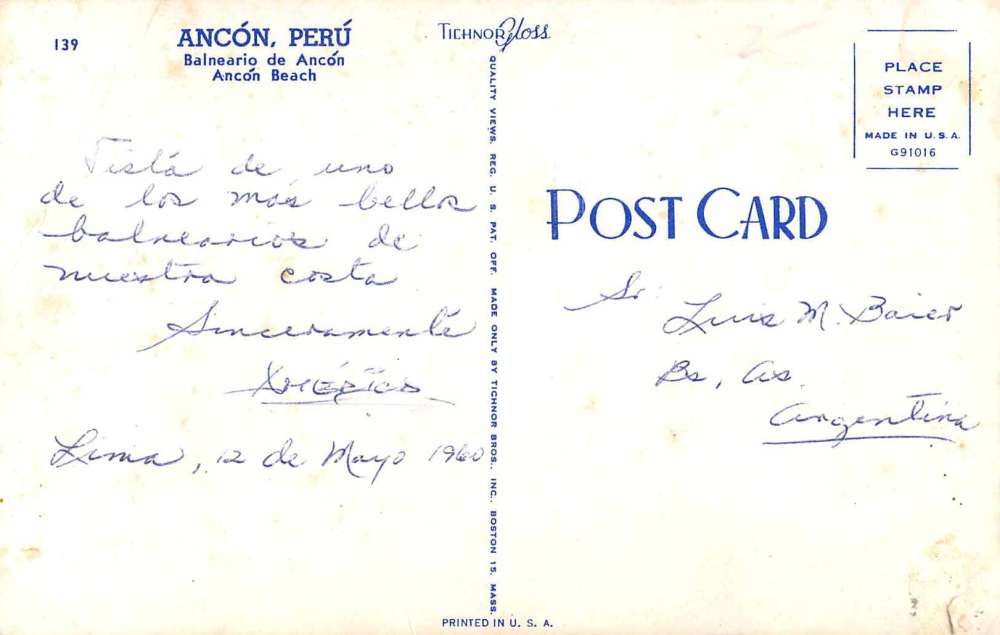 139
ANCÓN, PERÚ
Balneario de Ancón
Ancón Beach
TICHNOR Gloss
QUALITY VIEWS. REG. U. S. PAT. OFF. MADE ONLY BY TICHNOR BROS., INC., BOSTON 15, MASS.
PRINTED IN U. S. A.
PLACE
STAMP
HERE
MADE IN U.S.A.
G91016
POST CARD
Vista de uno
de los más bellos
balnearios de
nuestra costa
Sinceramente
Lima, 12 de Mayo 1960
Sr. Luis M. Baier
Bs, As.
Argentina